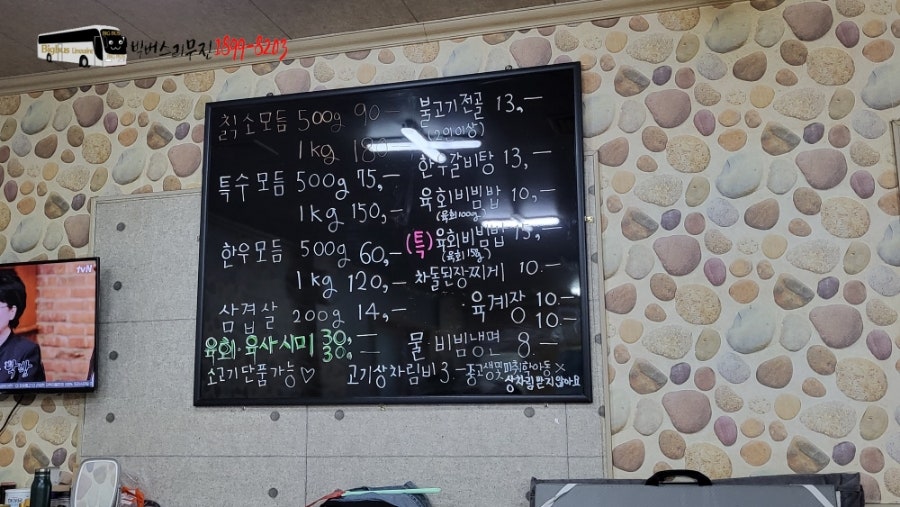 Bigbus Limousine
BIG BUS
빅버스리무진 1899-8203
칡소모듬 500g 90.-
1kg 180
특수모듬 500g 75,-
1kg 150,-
한우모듬 500g 60,-
1kg 120,-
삼겹살 200g 14,-
육회·육사시미 30,-
30,-
소고기 단품가능♡
불고기전골 13,-
(2인이상)
한우갈비탕 13,-
육회비빔밥 10,-
(육회100g)
(특)육회비빔밥 15,-
(육회150g)
차돌된장찌게 10.-
·육계장 10.-
10.-
물·비빔냉면 8.-
고기상차림비 3.- 중고생및미취학아동×
상차림받지않아요
tvN